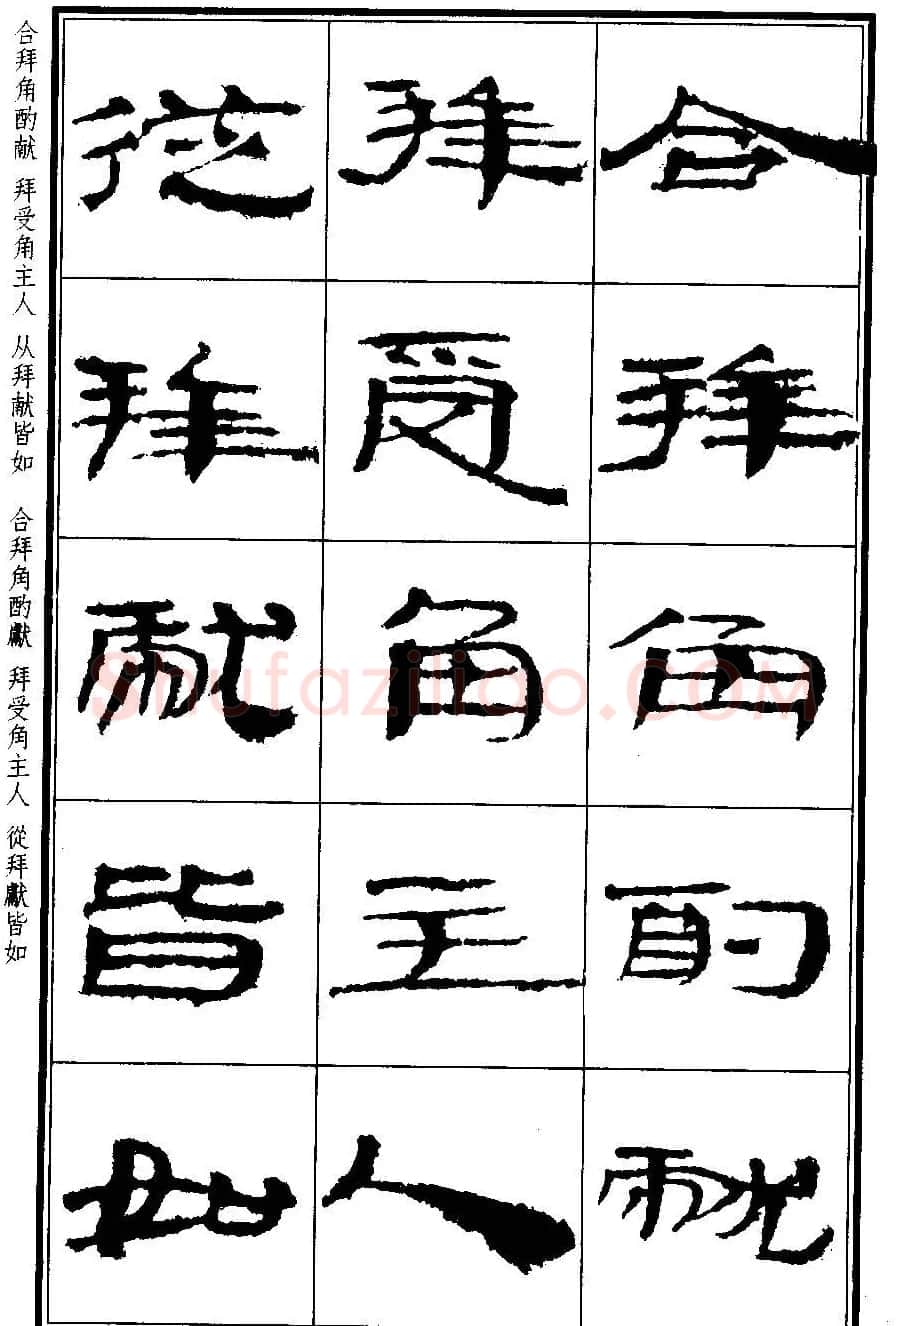 合拜角酌獻
拜受角主人
從拜獻皆如
合拜角酌献 拜受角主人 从拜献皆如 合拜角酌獻 拜受角主人 從拜獻皆如
Shufaziliao.COM